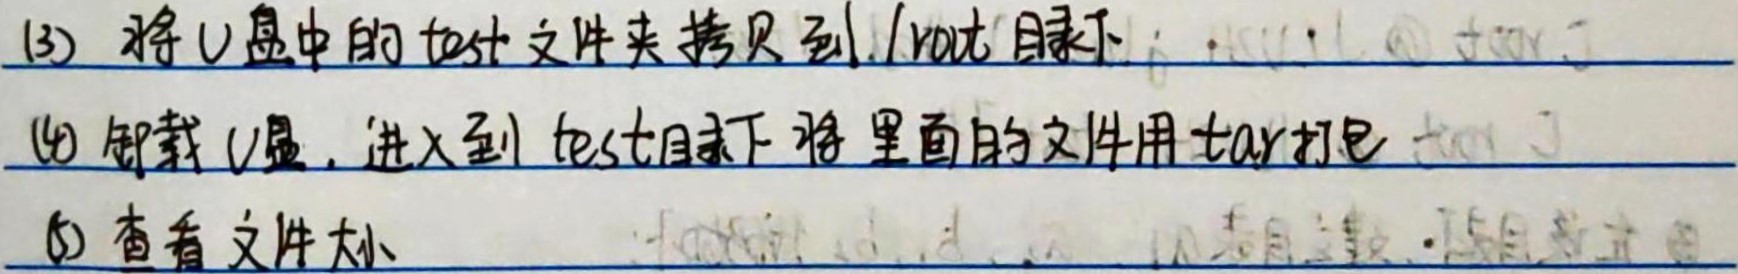 (3) 将U盘中的test文件夹拷贝到/root目录下
(4) 卸载U盘，进入到test目录下将里面的文件用tar打包
(5) 查看文件大小